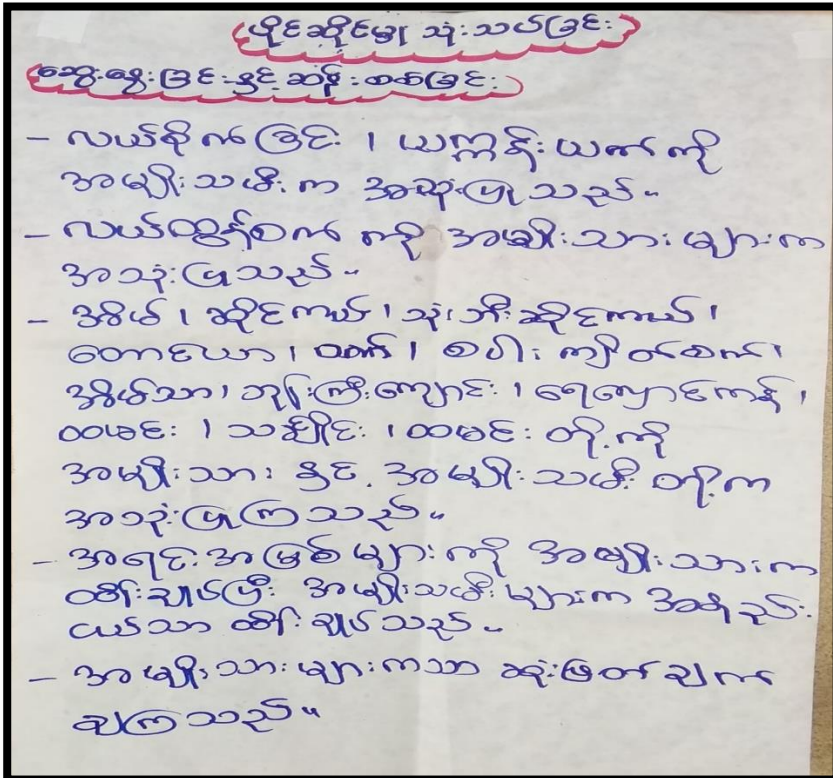 ပိုင်ဆိုင်မှု သုံးသပ်ခြင်း
ဆွေးနွေးခြင်းနှင့် ဆန်းစစ်ခြင်း
- လယ်စိုက်ခြင်း ၊ ယက္ကန်းယက်ကို
အမျိုးသမီးက အသုံးပြုသည်။
- လယ်ထွန်စက် ကို အမျိုးသားများက
အသုံးပြုသည်။
- အိမ် ၊ ဆိုင်ကယ် ၊ သုံးဘီးဆိုင်ကယ် ၊
တောင်ယာ ၊ ဝက် ၊ စပါး ကြိတ်စက် ၊
အိမ်သာ ၊ ဘုန်းကြီးကျောင်း ၊ ရေလှောင်ကန် ၊
ထမင်း ၊ သင်္ချိုင်း ၊ ထမင်း တို့ကို
အမျိုးသား နှင့် အမျိုးသမီး တို့က
အသုံးပြုကြသည်။
- အရင်းအမြစ်များကို အမျိုးသားက
ထိန်းချုပ်ပြီး အမျိုးသမီးများက အနည်း
ငယ်သာ ထိန်းချုပ်သည်။
- အမျိုးသားများကသာ ဆုံးဖြတ်ချက်
ချကြသည်။